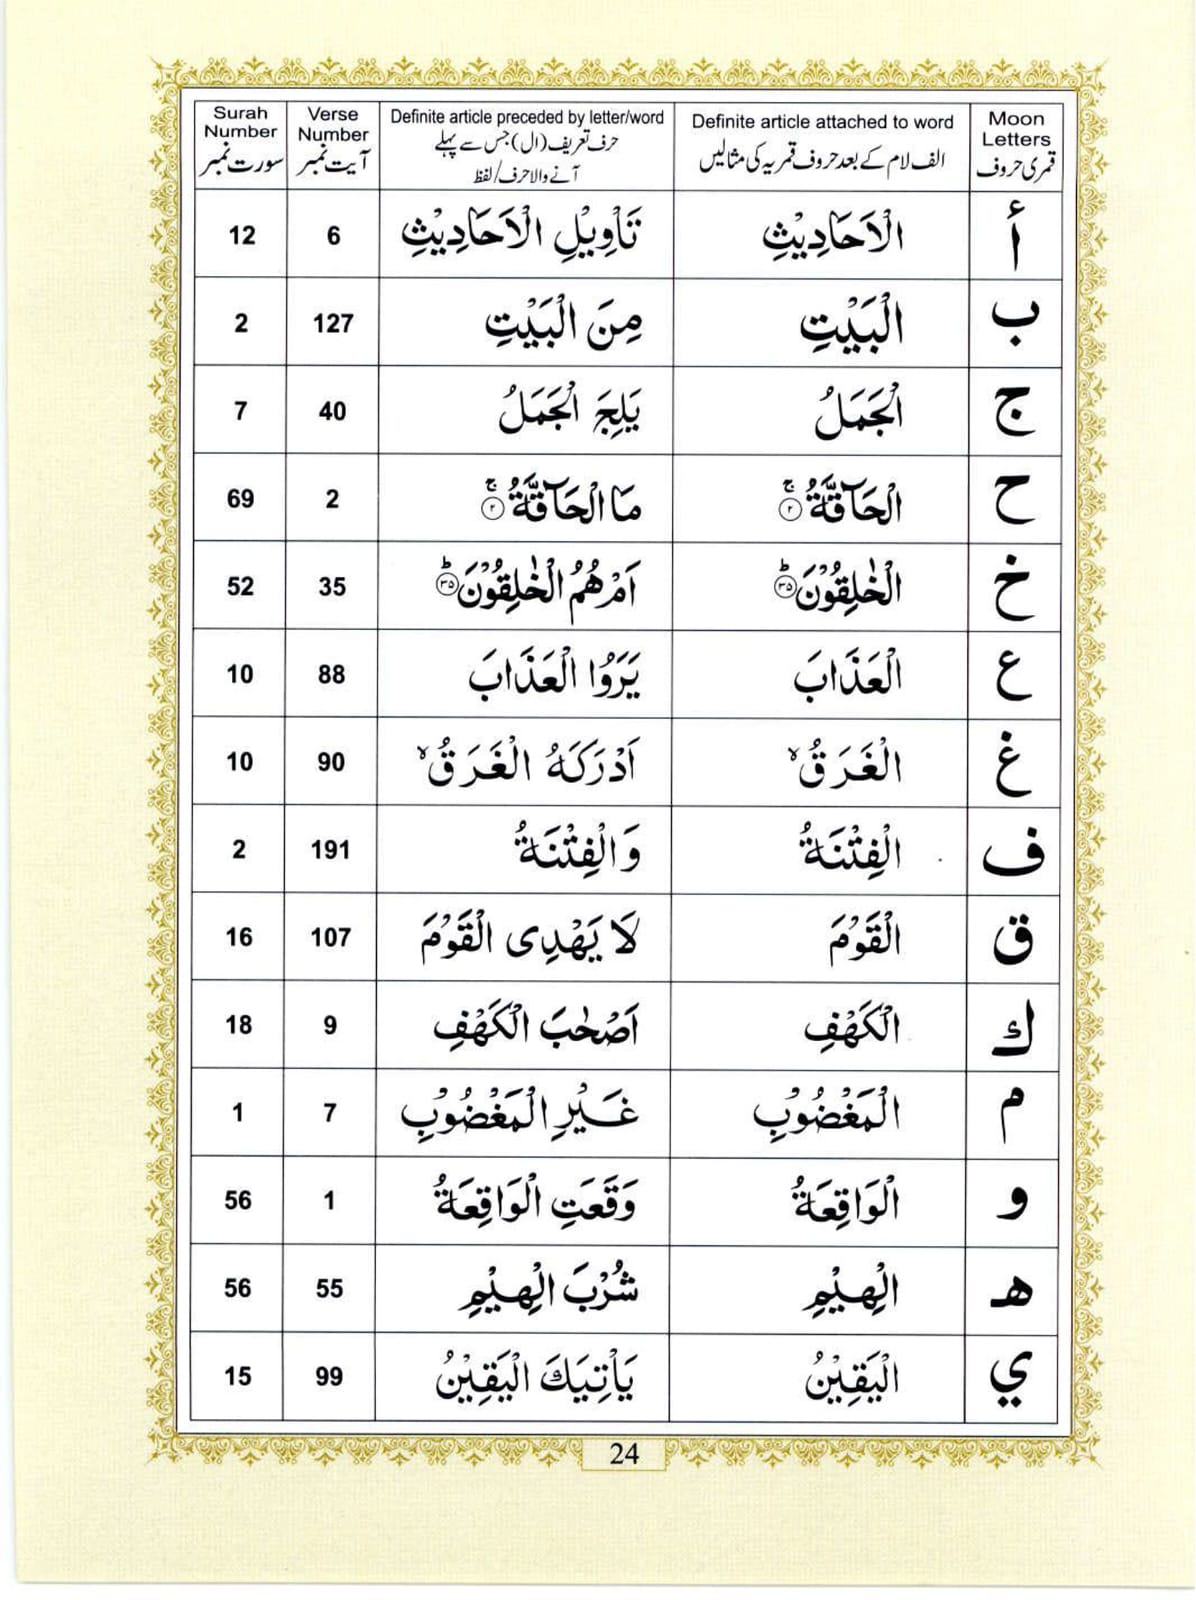 Surah Number سورت نمبر | Verse Number آیت نمبر | Definite article preceded by letter/word حرف تعریف (ال) جس سے پہلے آنے والا حرف/لفظ | Definite article attached to word الف لام کے بعد حروف قمریہ کی مثالیں | Moon Letters قمری حروف
12 | 6 | تَاْوِيْلِ الْاَحَادِيْثِ | الْاَحَادِيْثِ | أ
2 | 127 | مِنَ الْبَيْتِ | الْبَيْتِ | ب
7 | 40 | يَلِجَ الْجَمَلُ | الْجَمَلُ | ج
69 | 2 | مَا الْحَآقَّةُ ۚ‏ ﴿۲﴾ | الْحَآقَّةُ ۚ‏ ﴿۲﴾ | ح
52 | 35 | اَمْ هُمُ الْخٰلِقُوْنَؕ‏ ﴿۳۵﴾ | الْخٰلِقُوْنَؕ‏ ﴿۳۵﴾ | خ
10 | 88 | يَرَوُا الْعَذَابَ | الْعَذَابَ | ع
10 | 90 | اَدْرَكَهُ الْغَرَقُ ۙ | الْغَرَقُ ۙ | غ
2 | 191 | وَالْفِتْنَةُ | الْفِتْنَةُ | ف
16 | 107 | لَا يَهْدِى الْقَوْمَ | الْقَوْمَ | ق
18 | 9 | اَصْحٰبَ الْكَهْفِ | الْكَهْفِ | ك
1 | 7 | غَيْرِ الْمَغْضُوْبِ | الْمَغْضُوْبِ | م
56 | 1 | وَقَعَتِ الْوَاقِعَةُ | الْوَاقِعَةُ | و
56 | 55 | شُرْبَ الْهِيْمِ | الْهِيْمِ | هـ
15 | 99 | يَاْتِيَكَ الْيَقِيْنُ | الْيَقِيْنُ | ي
24